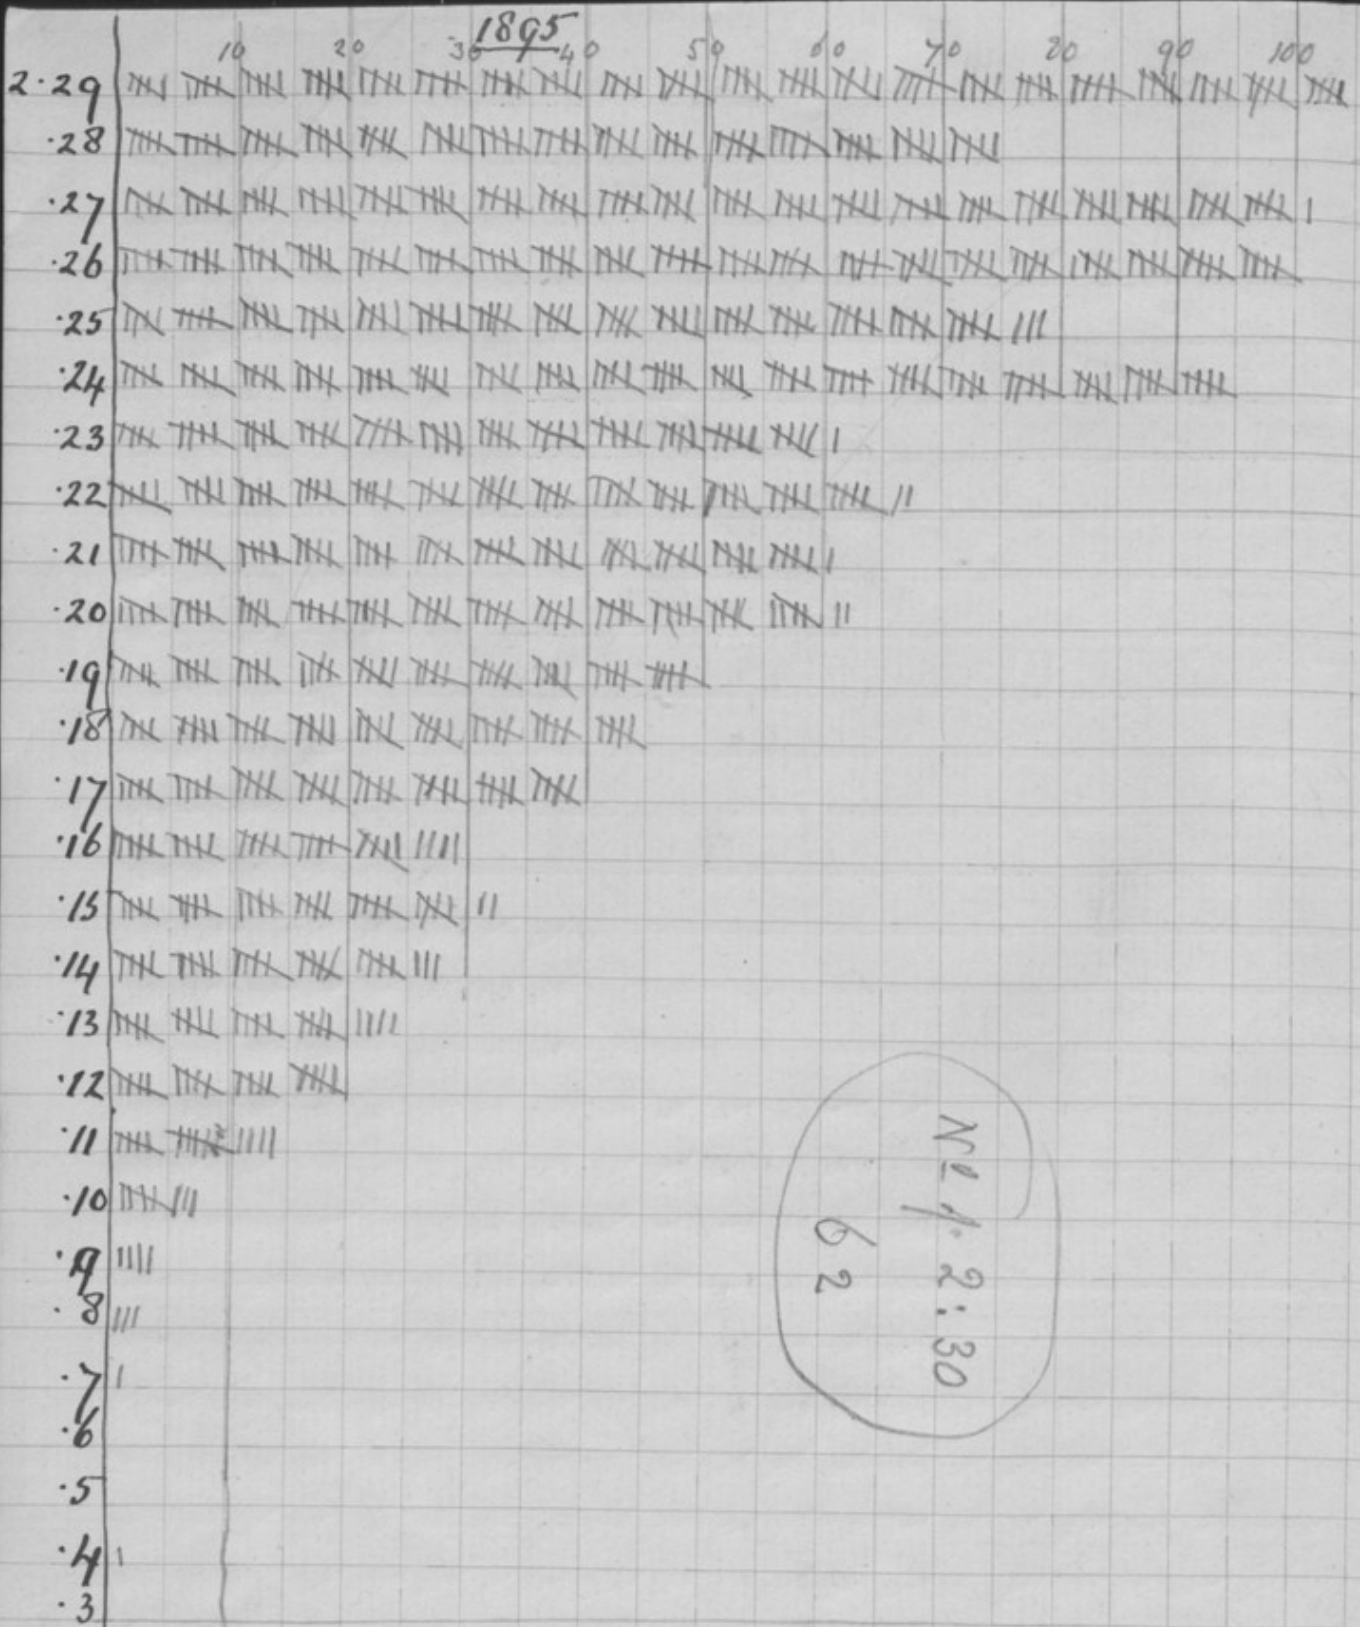 1895
10 20 30 40 50 60 70 80 90 100
2.29
.28
.27
.26
.25
.24
.23
.22
.21
.20
.19
.18
.17
.16
.15
.14
.13
.12
.11
.10
.9
.8
.7
.6
.5
.4
.3
2:30
62